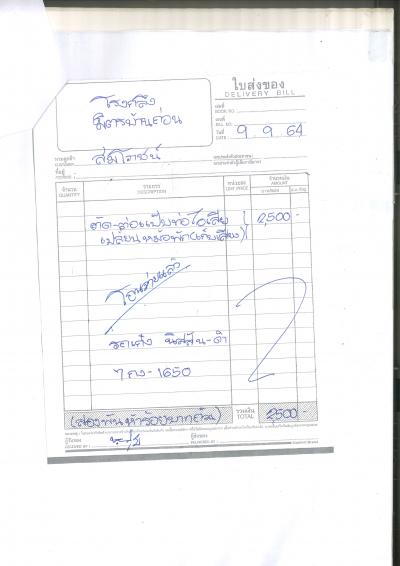 โรงกลึง
มิตรบ้านถ่อน
ใบส่งของ
DELIVERY BILL
เล่มที่
BOOK NO.
เลขที่
BILL NO.
วันที่ 9 9 64
DATE
นามลูกค้า
CUSTOMER
ที่อยู่
ADDRESS
จำนวน
QUANTITY
รายการ
DESCRIPTION
หน่วยละ
UNIT PRICE
จำนวนเงิน
AMOUNT
ตัด-ต่อแป๊บท่อไอเสีย 2,500 -
เปลี่ยนหม้อพัก(เก็บเสียง)
โอนจ่ายแล้ว
รถเก๋ง นิสสัน-ดำ
1650
(สองพันห้าร้อยบาทถ้วน) รวมเงิน
TOTAL 2500 -
ผู้รับของ
RECEIVED BY
ผู้ส่งของ
DELIVERED BY